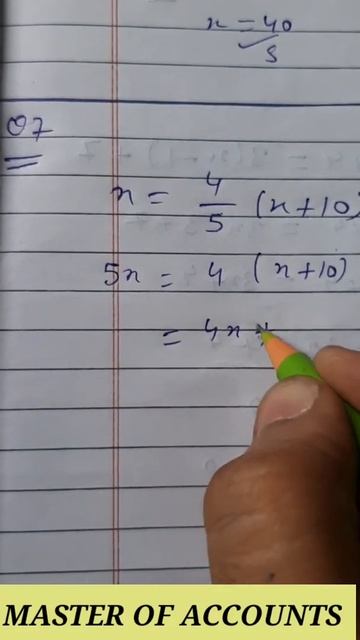 x = 40
5
Q7
x = 4/5 (x+10)
5x = 4 (x+10)
= 4x +
MASTER OF ACCOUNTS